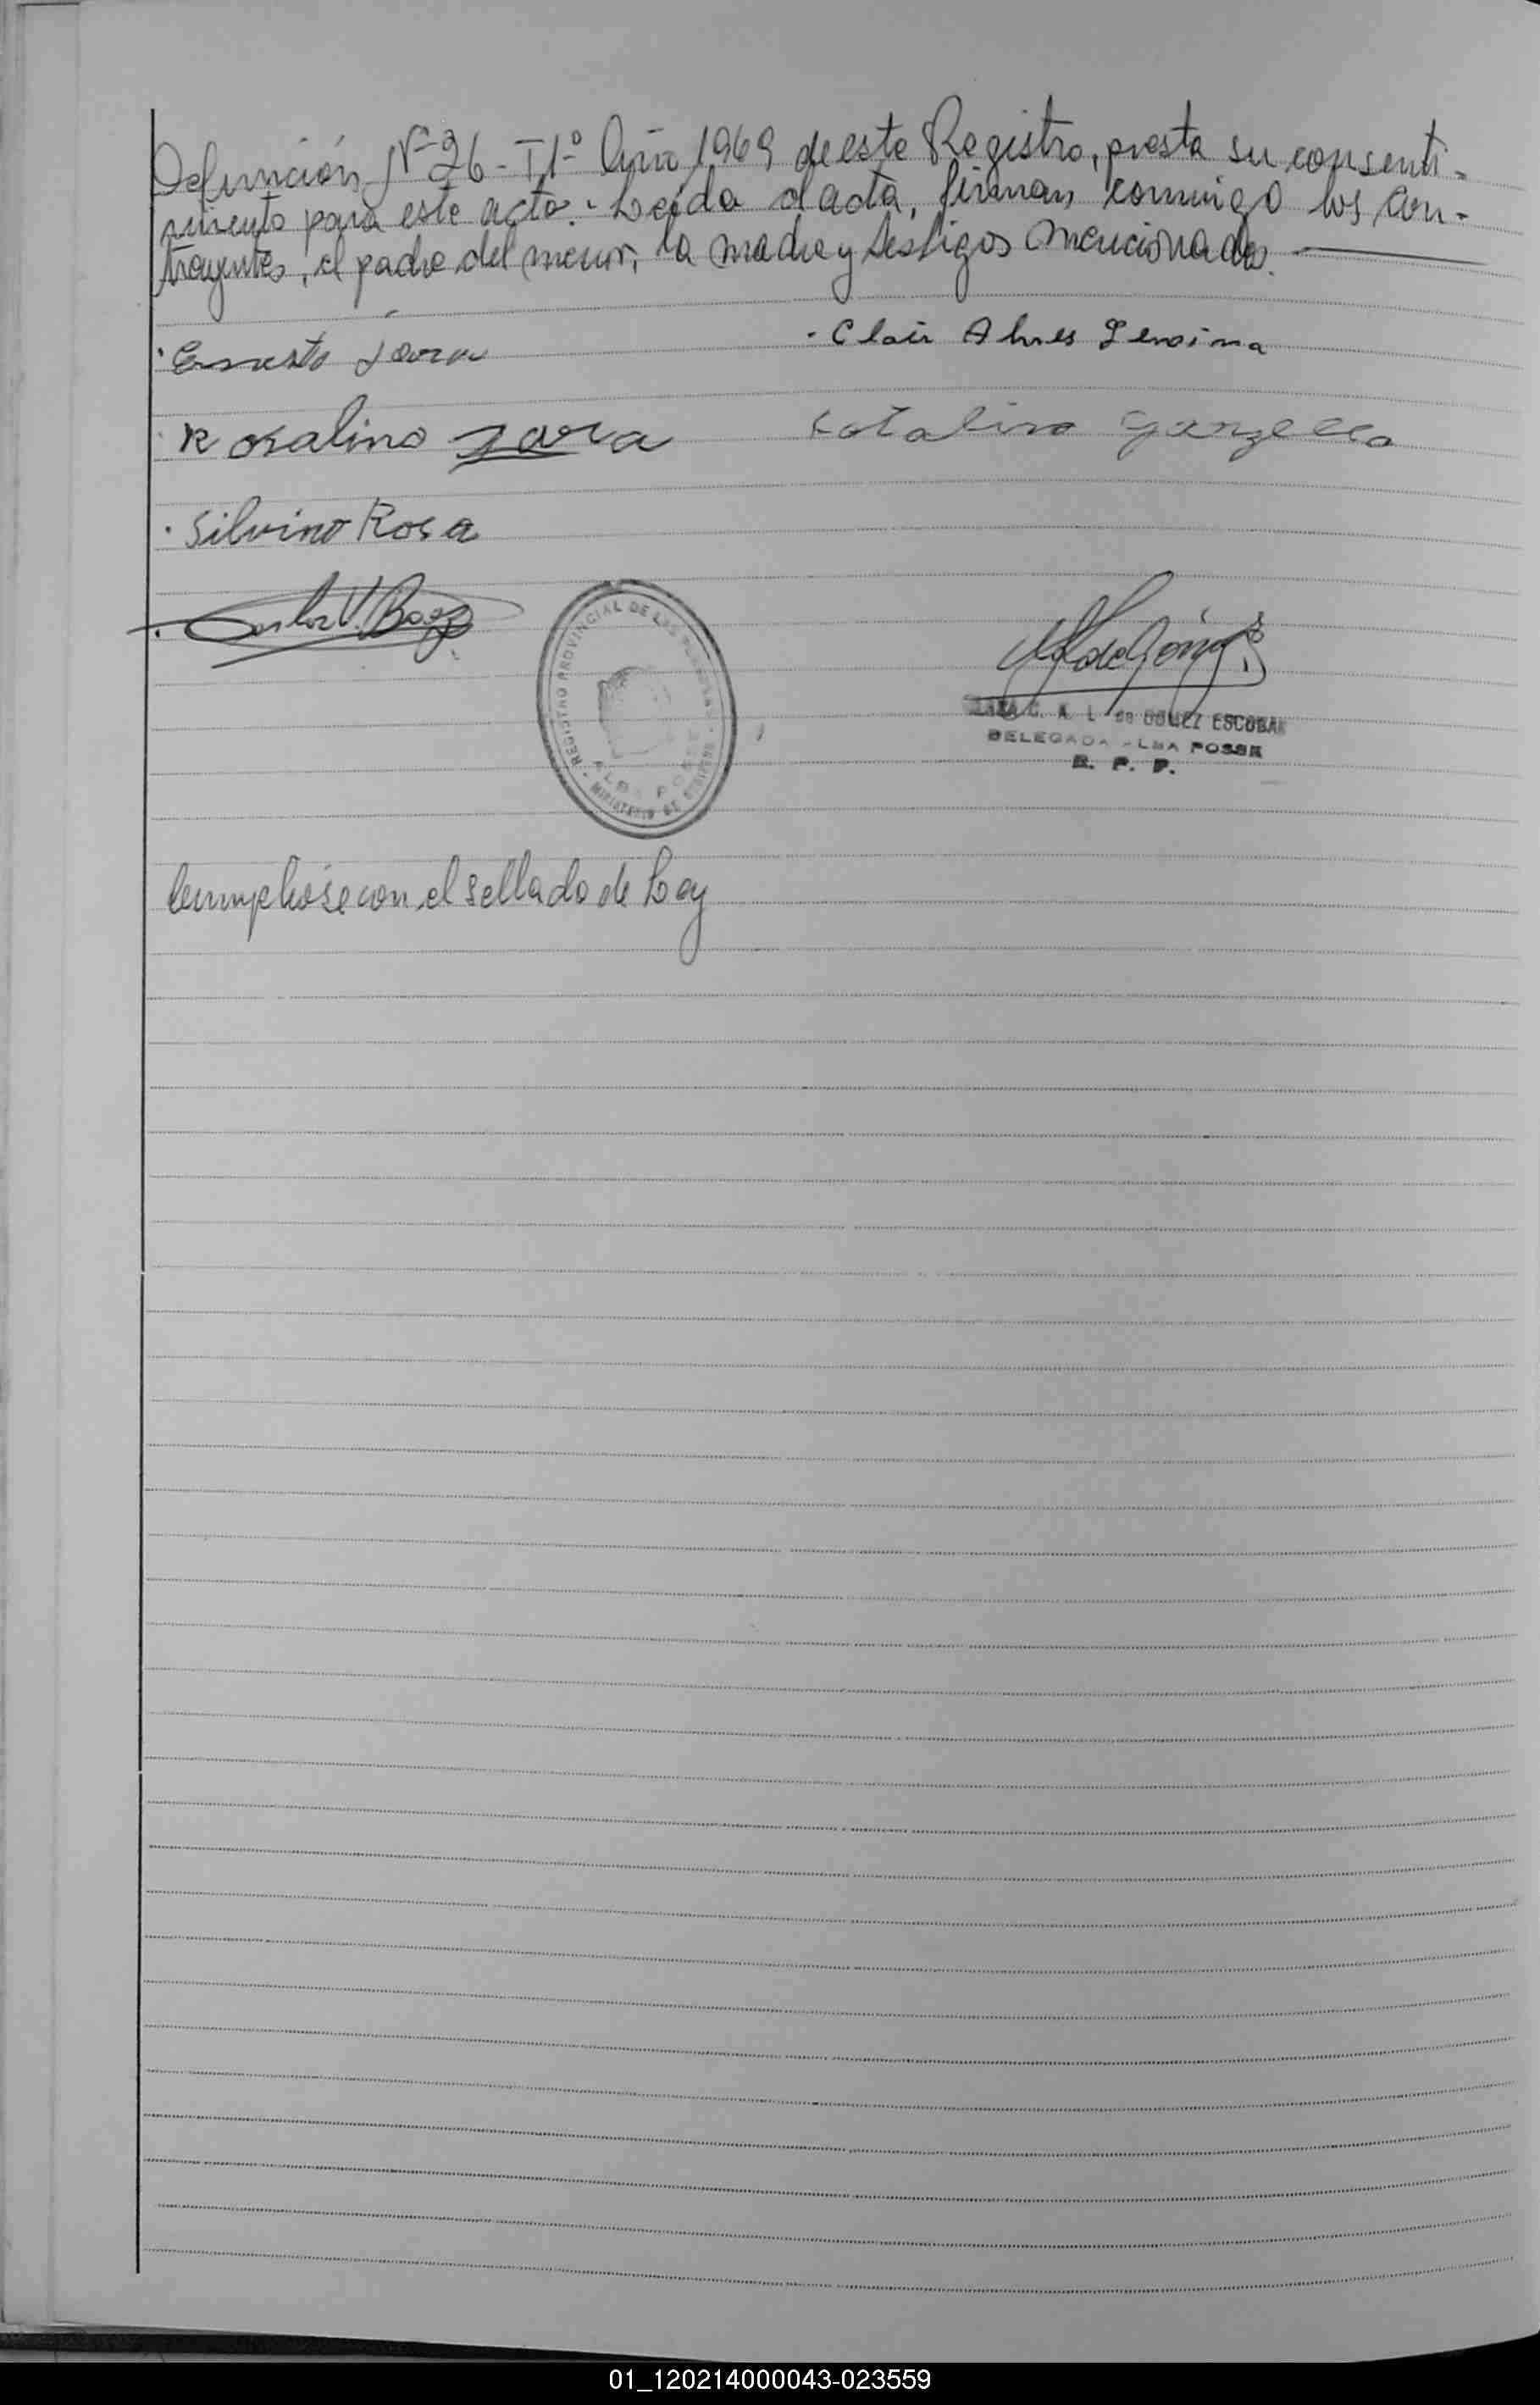 Defunción Nº 26 - Tº 1º Año 1969 de este Registro, presta su consenti-
miento para este acto.- Leída el acta, firman conmigo los con-
trayentes, el padre del menor, la madre y testigos mencionados.
Ernesto Jara
Clair Alves
Rosalino Jara
Catalina
Silvino Rosa
Carlos V. Baez
REGISTRO PROVINCIAL DE LAS PERSONAS
ALBA POSSE
MINISTERIO DE GOBIERNO
C. A. L. de GOMEZ ESCOBAR
DELEGADA ALBA POSSE
R. P. P.
Cumplióse con el sellado de Ley
01_120214000043-023559